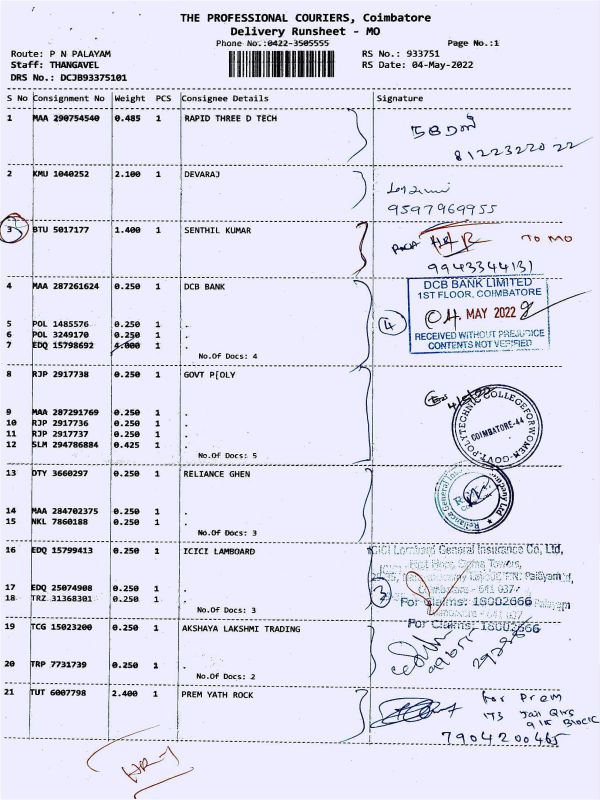 THE PROFESSIONAL COURIERS, Coimbatore
Delivery Runsheet - MO
Phone No.:0422-3505555 Page No.:1
Route: P N PALAYAM RS No.: 933751
Staff: THANGAVEL RS Date: 04-May-2022
DRS No.: DCJB93375101
S No Consignment No Weight PCS Consignee Details Signature
1 MAA 290754540 0.485 1 RAPID THREE D TECH
8122322022
2 KMU 1040252 2.100 1 DEVARAJ
9597969955
3 BTU 5017177 1.400 1 SENTHIL KUMAR
TO MO
9943344131
4 MAA 287261624 0.250 1 DCB BANK
DCB BANK LIMITED
1ST FLOOR, COIMBATORE
04 MAY 2022
RECEIVED WITHOUT PREJUDICE
CONTENTS NOT VERIFIED
4
5 POL 1485576 0.250 1 .
6 POL 3249170 0.250 1 .
7 EDQ 15798692 4.000 1 .
No.Of Docs: 4
8 RJP 2917738 0.250 1 GOVT P[OLY
9 MAA 287291769 0.250 1 .
10 RJP 2917736 0.250 1 .
11 RJP 2917737 0.250 1 .
12 SLM 294786884 0.425 1 .
No.Of Docs: 5
POLYTECHNIC COLLEGE FOR WOMEN GOVT.
COIMBATORE-44
13 DTY 3660297 0.250 1 RELIANCE GHEN
14 MAA 284702375 0.250 1 .
15 NKL 7860188 0.250 1 .
No.Of Docs: 3
Reliance General Insurance Company Ltd
16 EDQ 15799413 0.250 1 ICICI LAMBOARD
ICICI Lombard General Insurance Co, Ltd,
17 EDQ 25074908 0.250 1 .
18 TRZ 31368301 0.250 1 .
No.Of Docs: 3
3
For Claims: 18002666
For Claims: 18002666
19 TCG 15023200 0.250 1 AKSHAYA LAKSHMI TRADING
20 TRP 7731739 0.250 1 .
No.Of Docs: 2
21 TUT 6007798 2.400 1 PREM YATH ROCK
for Prem
173 Jail Qtrs
Block
7904200465